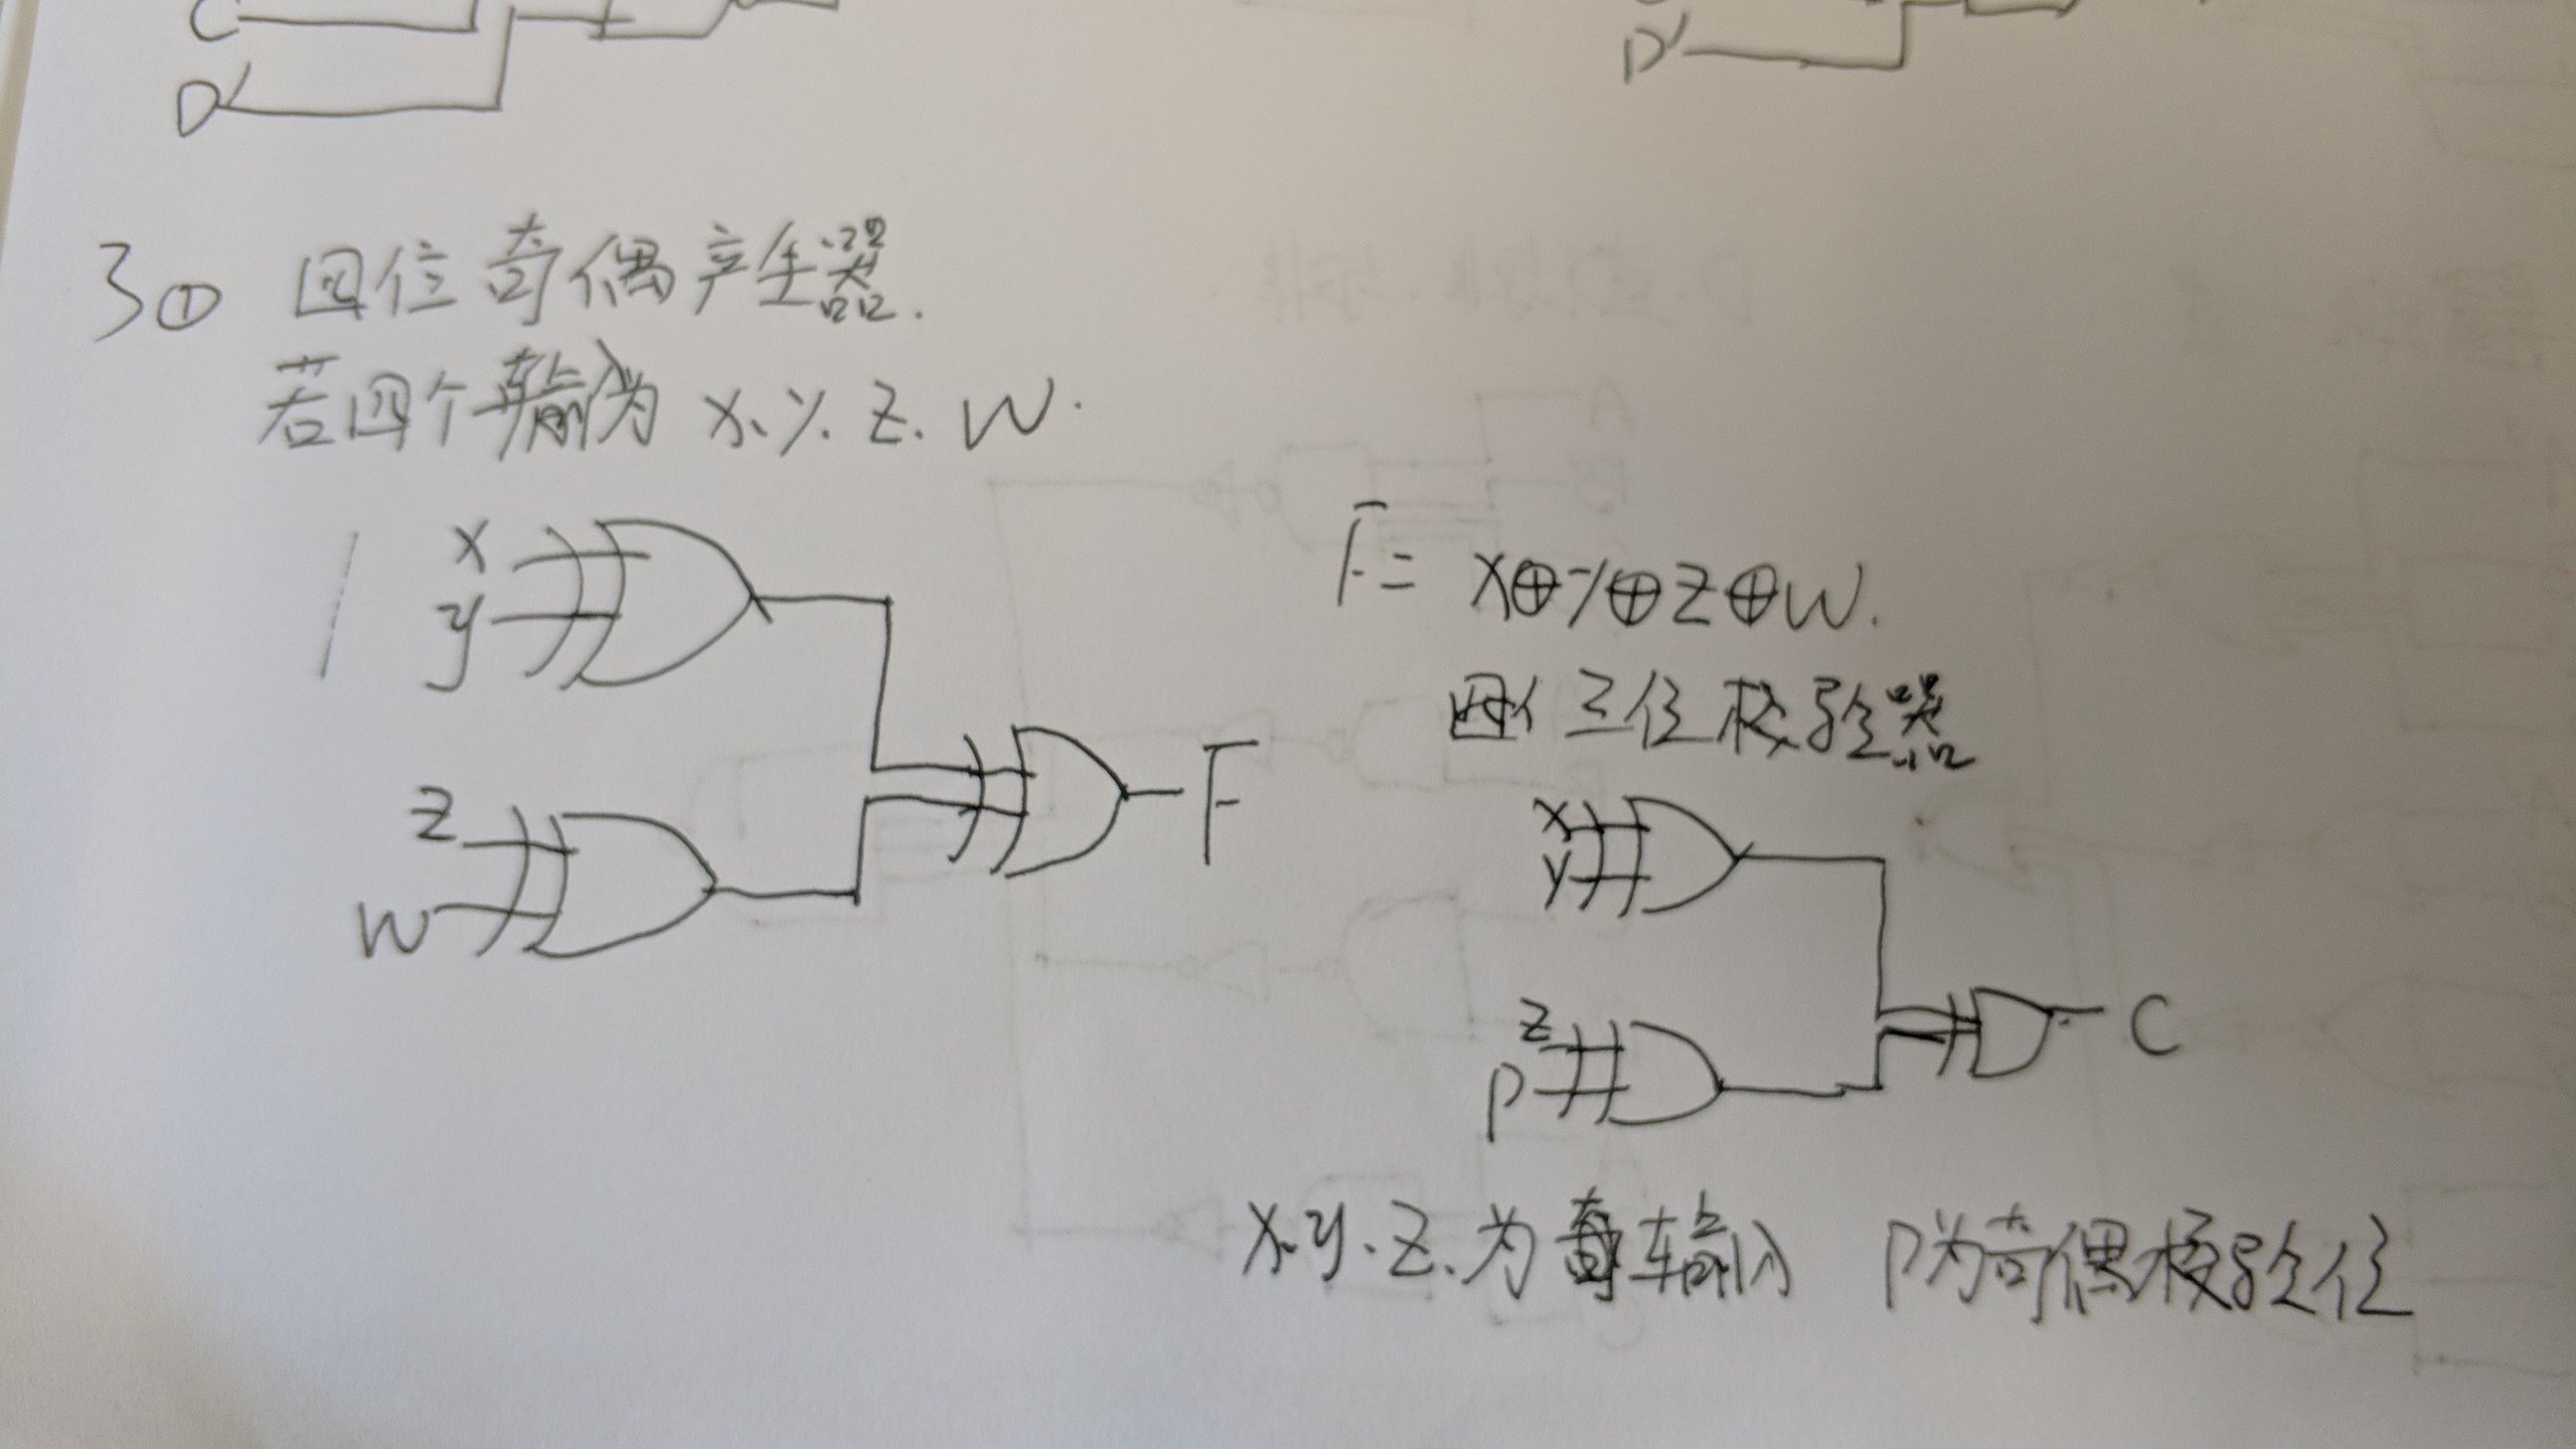 C
D'
D'
3① 四位奇偶产生器.
若四个输入为 x. y. z. W.
x
y
z
W
F
F = X⊕y⊕Z⊕W.
三位校验器
x
y
z
P
C
x.y.z.为输入 P为奇偶校验位